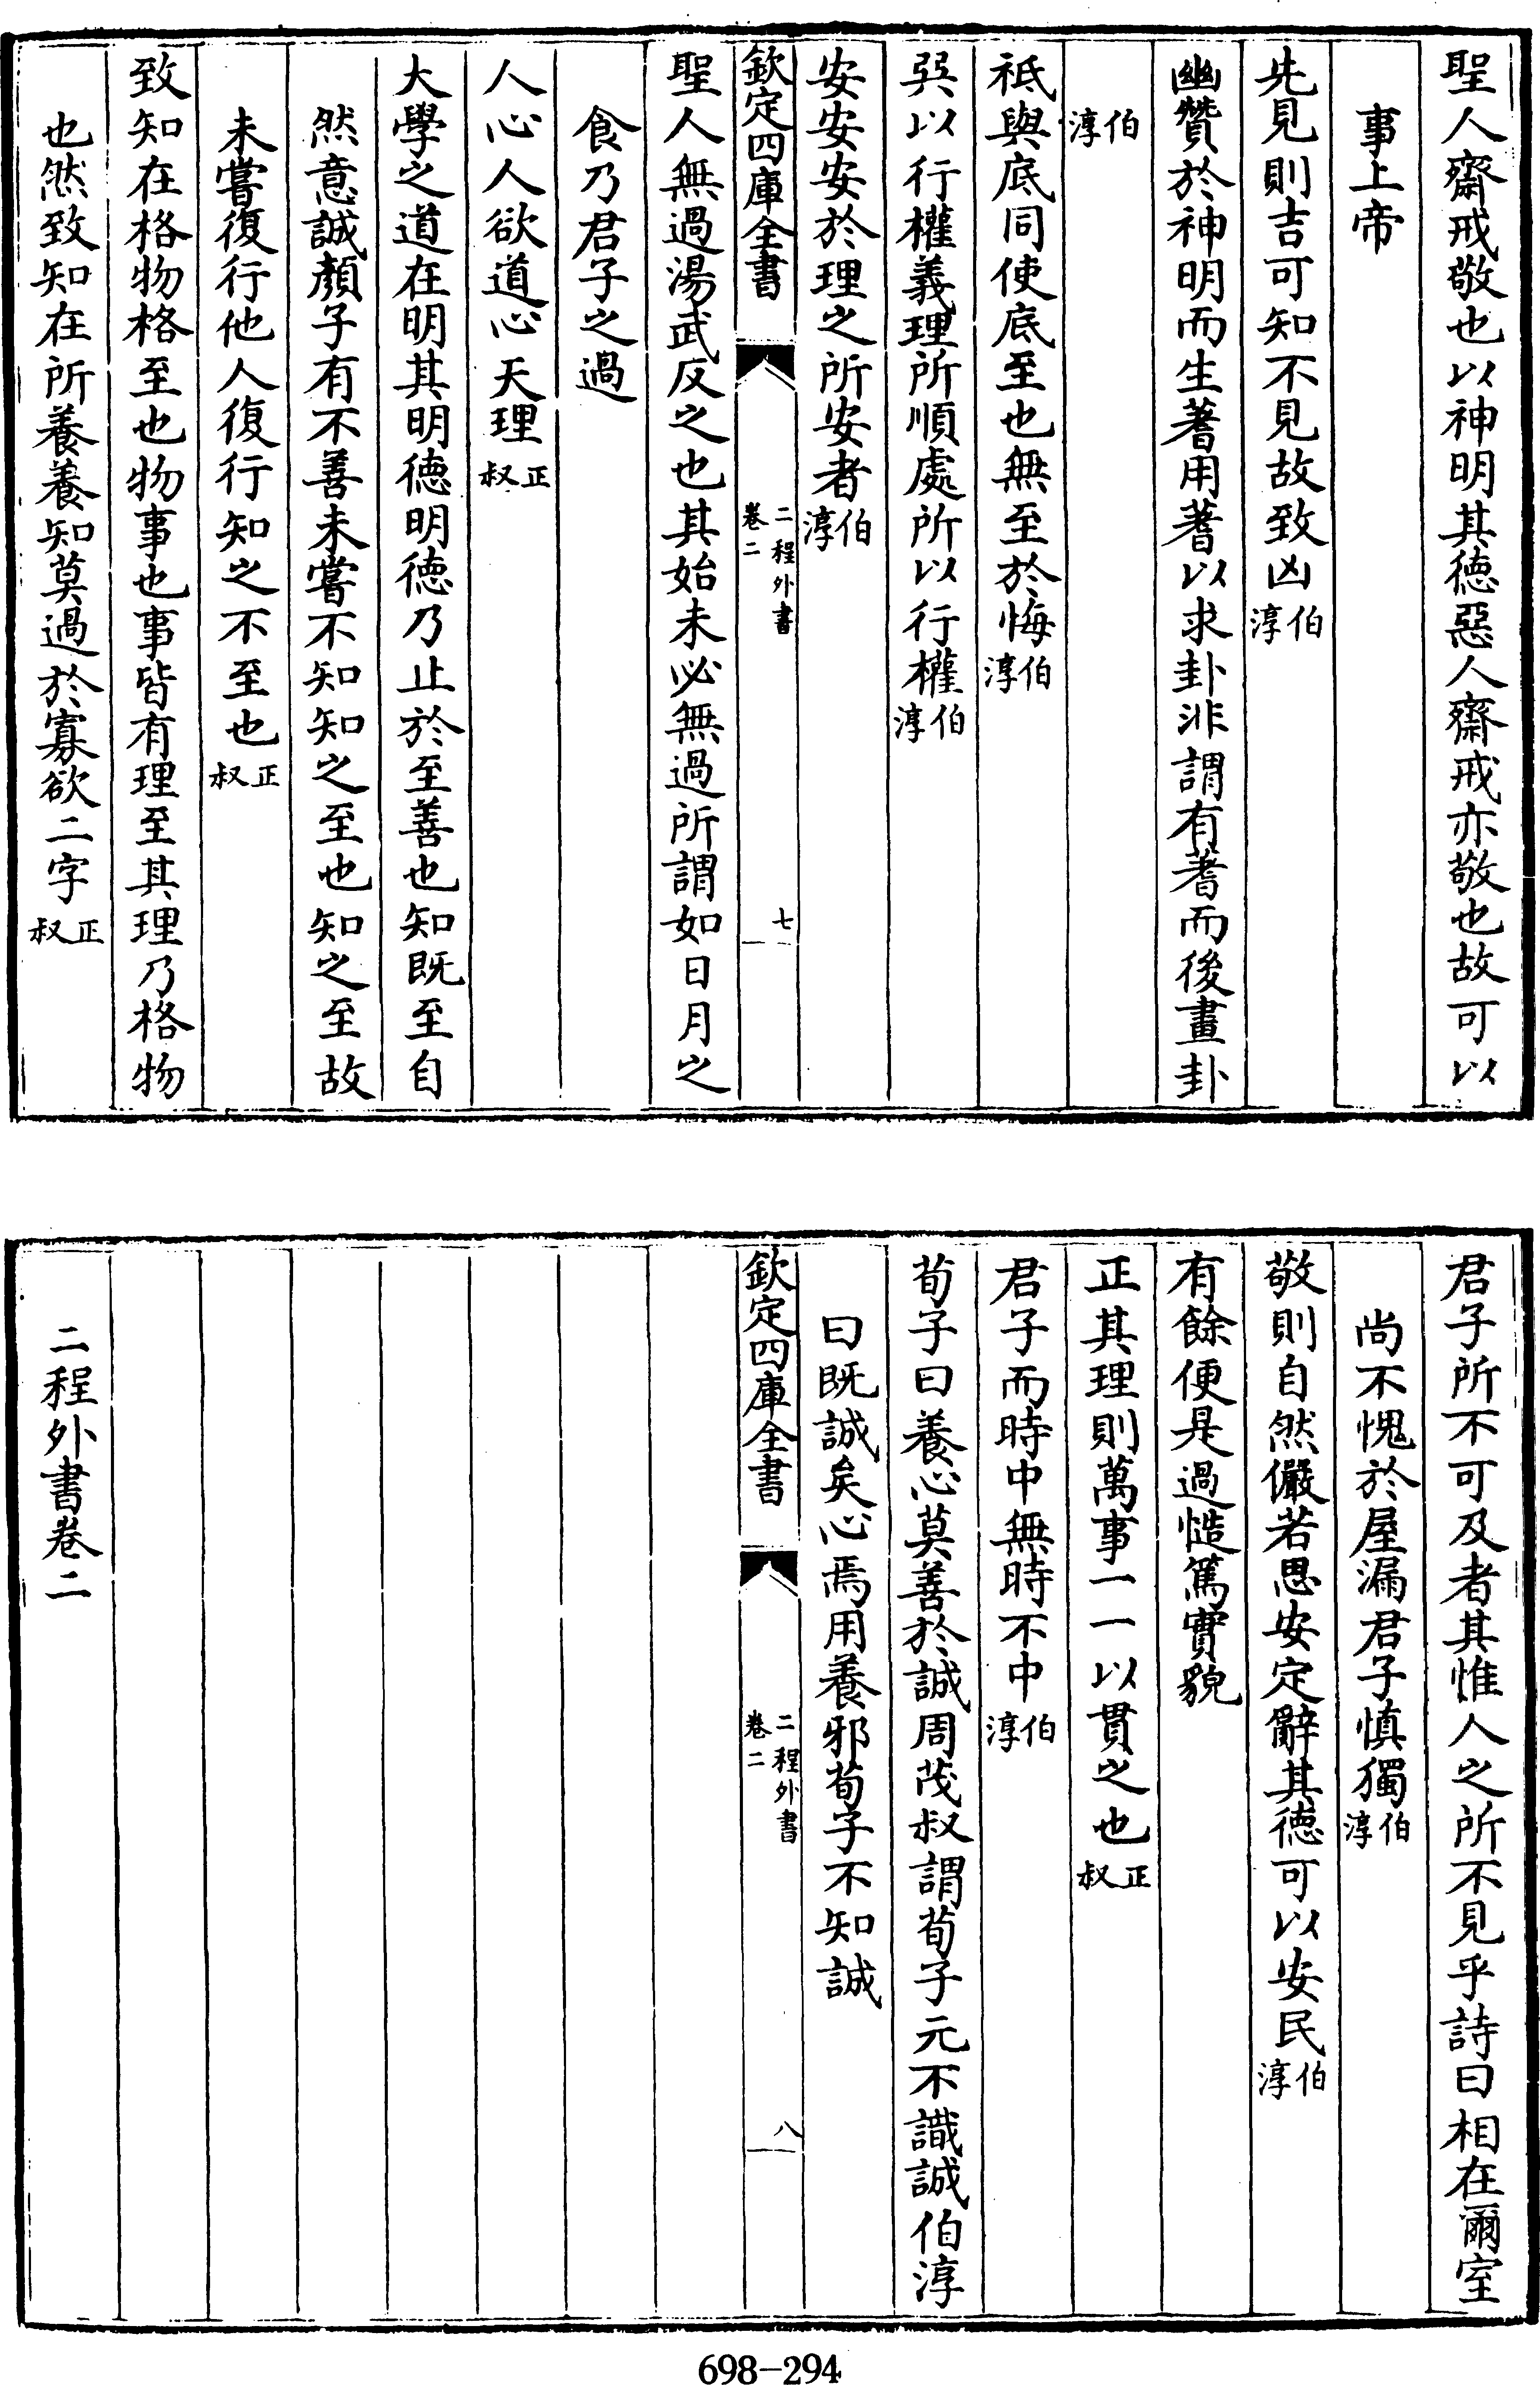 聖人齋戒敬也以神明其徳惡人齋戒亦敬也故可以
事上帝
先見則吉可知不見故致凶伯淳
幽贊於神明而生蓍用蓍以求卦非謂有蓍而後畫卦
伯淳
祗與底同使底至也無至於悔伯淳
巽以行權義理所順處所以行權伯淳
安安安於理之所安者伯淳
欽定四庫全書
二程外書
卷二
七
聖人無過湯武反之也其始未必無過所謂如日月之
食乃君子之過
人心人欲道心天理正叔
大學之道在明其明徳明徳乃止於至善也知既至自
然意誠顏子有不善未嘗不知知之至也知之至故
未嘗復行他人復行知之不至也正叔
致知在格物格至也物事也事皆有理至其理乃格物
也然致知在所養養知莫過於寡欲二字正叔
君子所不可及者其惟人之所不見乎詩曰相在爾室
尚不愧於屋漏君子慎獨伯淳
敬則自然儼若思安定辭其徳可以安民伯淳
有餘便是過慥篤實貌
正其理則萬事一一以貫之也正叔
君子而時中無時不中伯淳
荀子曰養心莫善於誠周茂叔謂荀子元不識誠伯淳
曰既誠矣心焉用養邪荀子不知誠
欽定四庫全書
二程外書
卷二
八
二程外書卷二
698-294